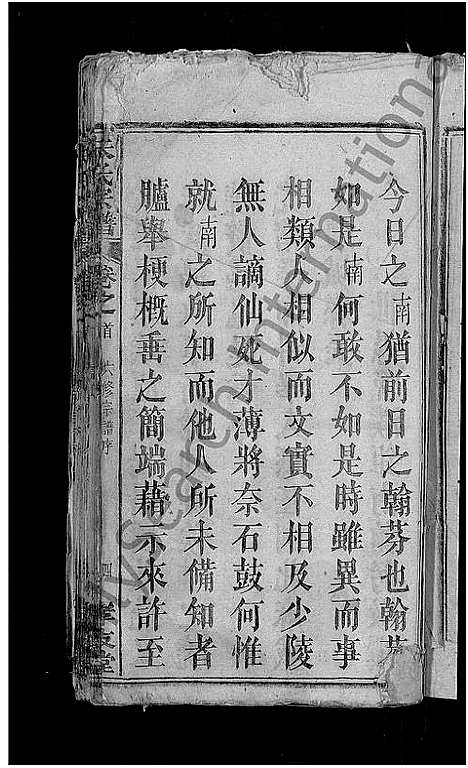 今日之南猶前日之翰芬也翰芬
如是南何敢不如是時雖異而事
相類人相似而文實不相及少陵
無人謫仙死才薄將奈石鼓何惟
就南之所知而他人所未備知者
臚舉梗概垂之簡端藉示來許至
朱氏宗譜 卷之首 共修宗譜序 四 堂